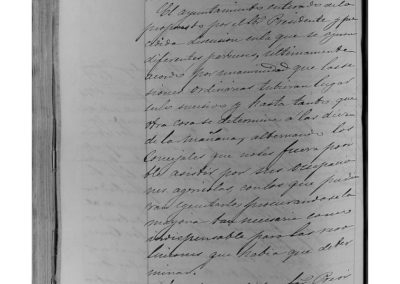 El ayuntamiento enterado de lo
propuesto por el Sr. Presidente y pre
bida discusion en la que se
diferentes ultimamente
acordó por unanimidad que las se
siones ordinarias tubieran lugar
en lo sucesivo y hasta tanto que
otra cosa se determine a las
de la mañana, alternando los
Concejales que no les fuera posi
ble asistir por sus ocupacio
nes agricolas, con los que pudie
ran procurando se la
mayoria tan necesaria como
indispensable para las reso
luciones que habia que deter
minar.